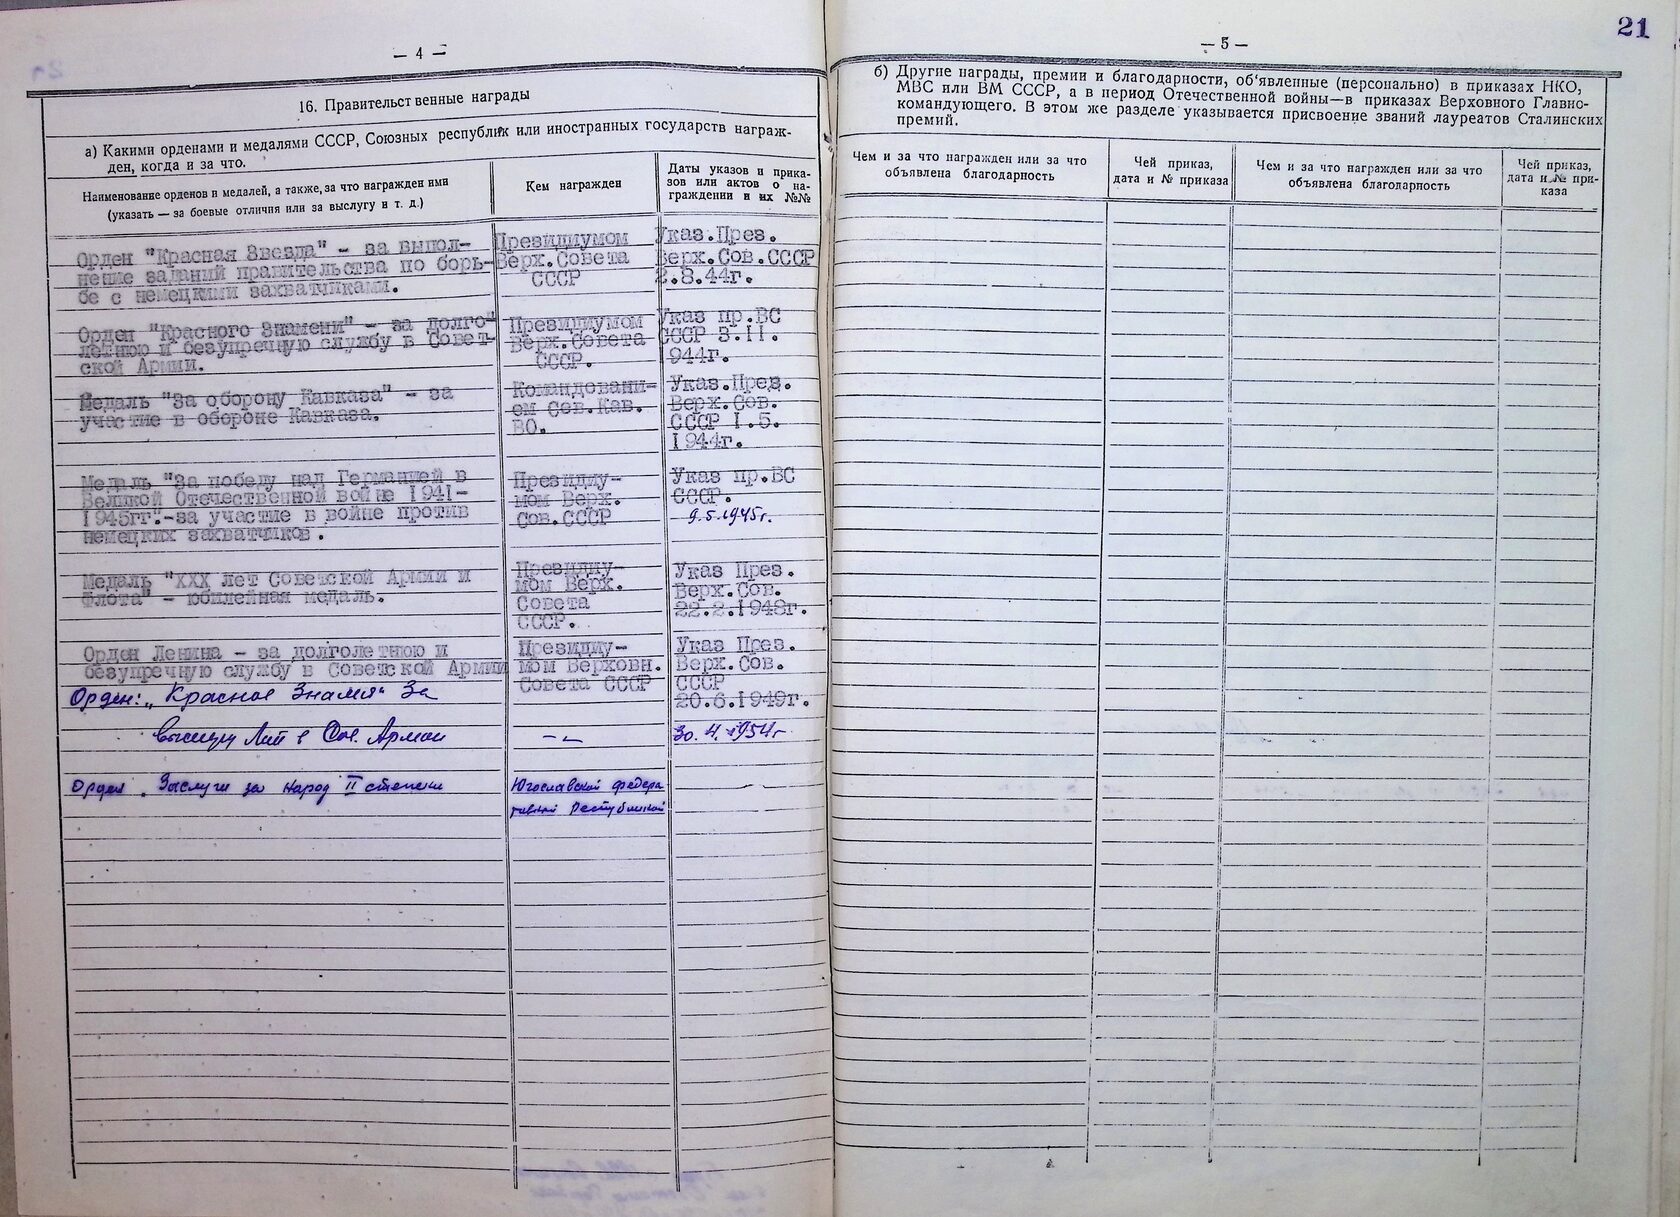 — 4 —
16. Правительственные награды
а) Какими орденами и медалями СССР, Союзных республик или иностранных государств награж-
ден, когда и за что.
Наименование орденов и медалей, а также, за что награжден ими
(указать — за боевые отличия или за выслугу и т. д.)
Кем награжден
Даты указов и прика-
зов или актов о на-
граждении и их №№
Орден "Красная Звезда" – за выпол-
нение заданий правительства по борь-
бе с немецкими захватчиками.
Президиумом
Верх.Совета
СССР
Указ.През.
Верх.Сов.СССР
2.8.44г.
Орден "Красного Знамени" – за долго-
летнюю и безупречную службу в Совет-
ской Армии.
Президиумом
Верх.Совета
СССР.
Указ пр.ВС
СССР 3.II.
944г.
Медаль "За оборону Кавказа" – за
участие в обороне Кавказа.
Командовани-
ем Сев.Кав.
ВО.
Указ.През.
Верх.Сов.
СССР I.5.
I944г.
Медаль "За победу над Германией в
Великой Отечественной войне I94I-
I945гг".-за участие в войне против
немецких захватчиков.
Президиу-
мом Верх.
Сов.СССР
Указ пр.ВС
СССР.
9.5.1945г.
Медаль "XXX лет Советской Армии и
Флота" – юбилейная медаль.
Президиу-
мом Верх.
Совета
СССР.
Указ През.
Верх.Сов.
22.2.I948г.
Орден Ленина – за долголетнюю и
безупречную службу в Советской Армии
Президиу-
мом Верховн.
Совета СССР
Указ През.
Верх.Сов.
СССР
20.6.I949г.
Орден: „Красное Знамя" За
выслугу Лет в Сов. Армии
–"–
30.4.1954г
Орден „Заслуги за народ II степени
Югославской федера
тивной Республикой
21
— 5 —
б) Другие награды, премии и благодарности, об'явленные (персонально) в приказах НКО,
МВС или ВМ СССР, а в период Отечественной войны—в приказах Верховного Главно-
командующего. В этом же разделе указывается присвоение званий лауреатов Сталинских
премий.
Чем и за что награжден или за что
объявлена благодарность
Чей приказ,
дата и № приказа
Чем и за что награжден или за что
объявлена благодарность
Чей приказ,
дата и № при-
каза